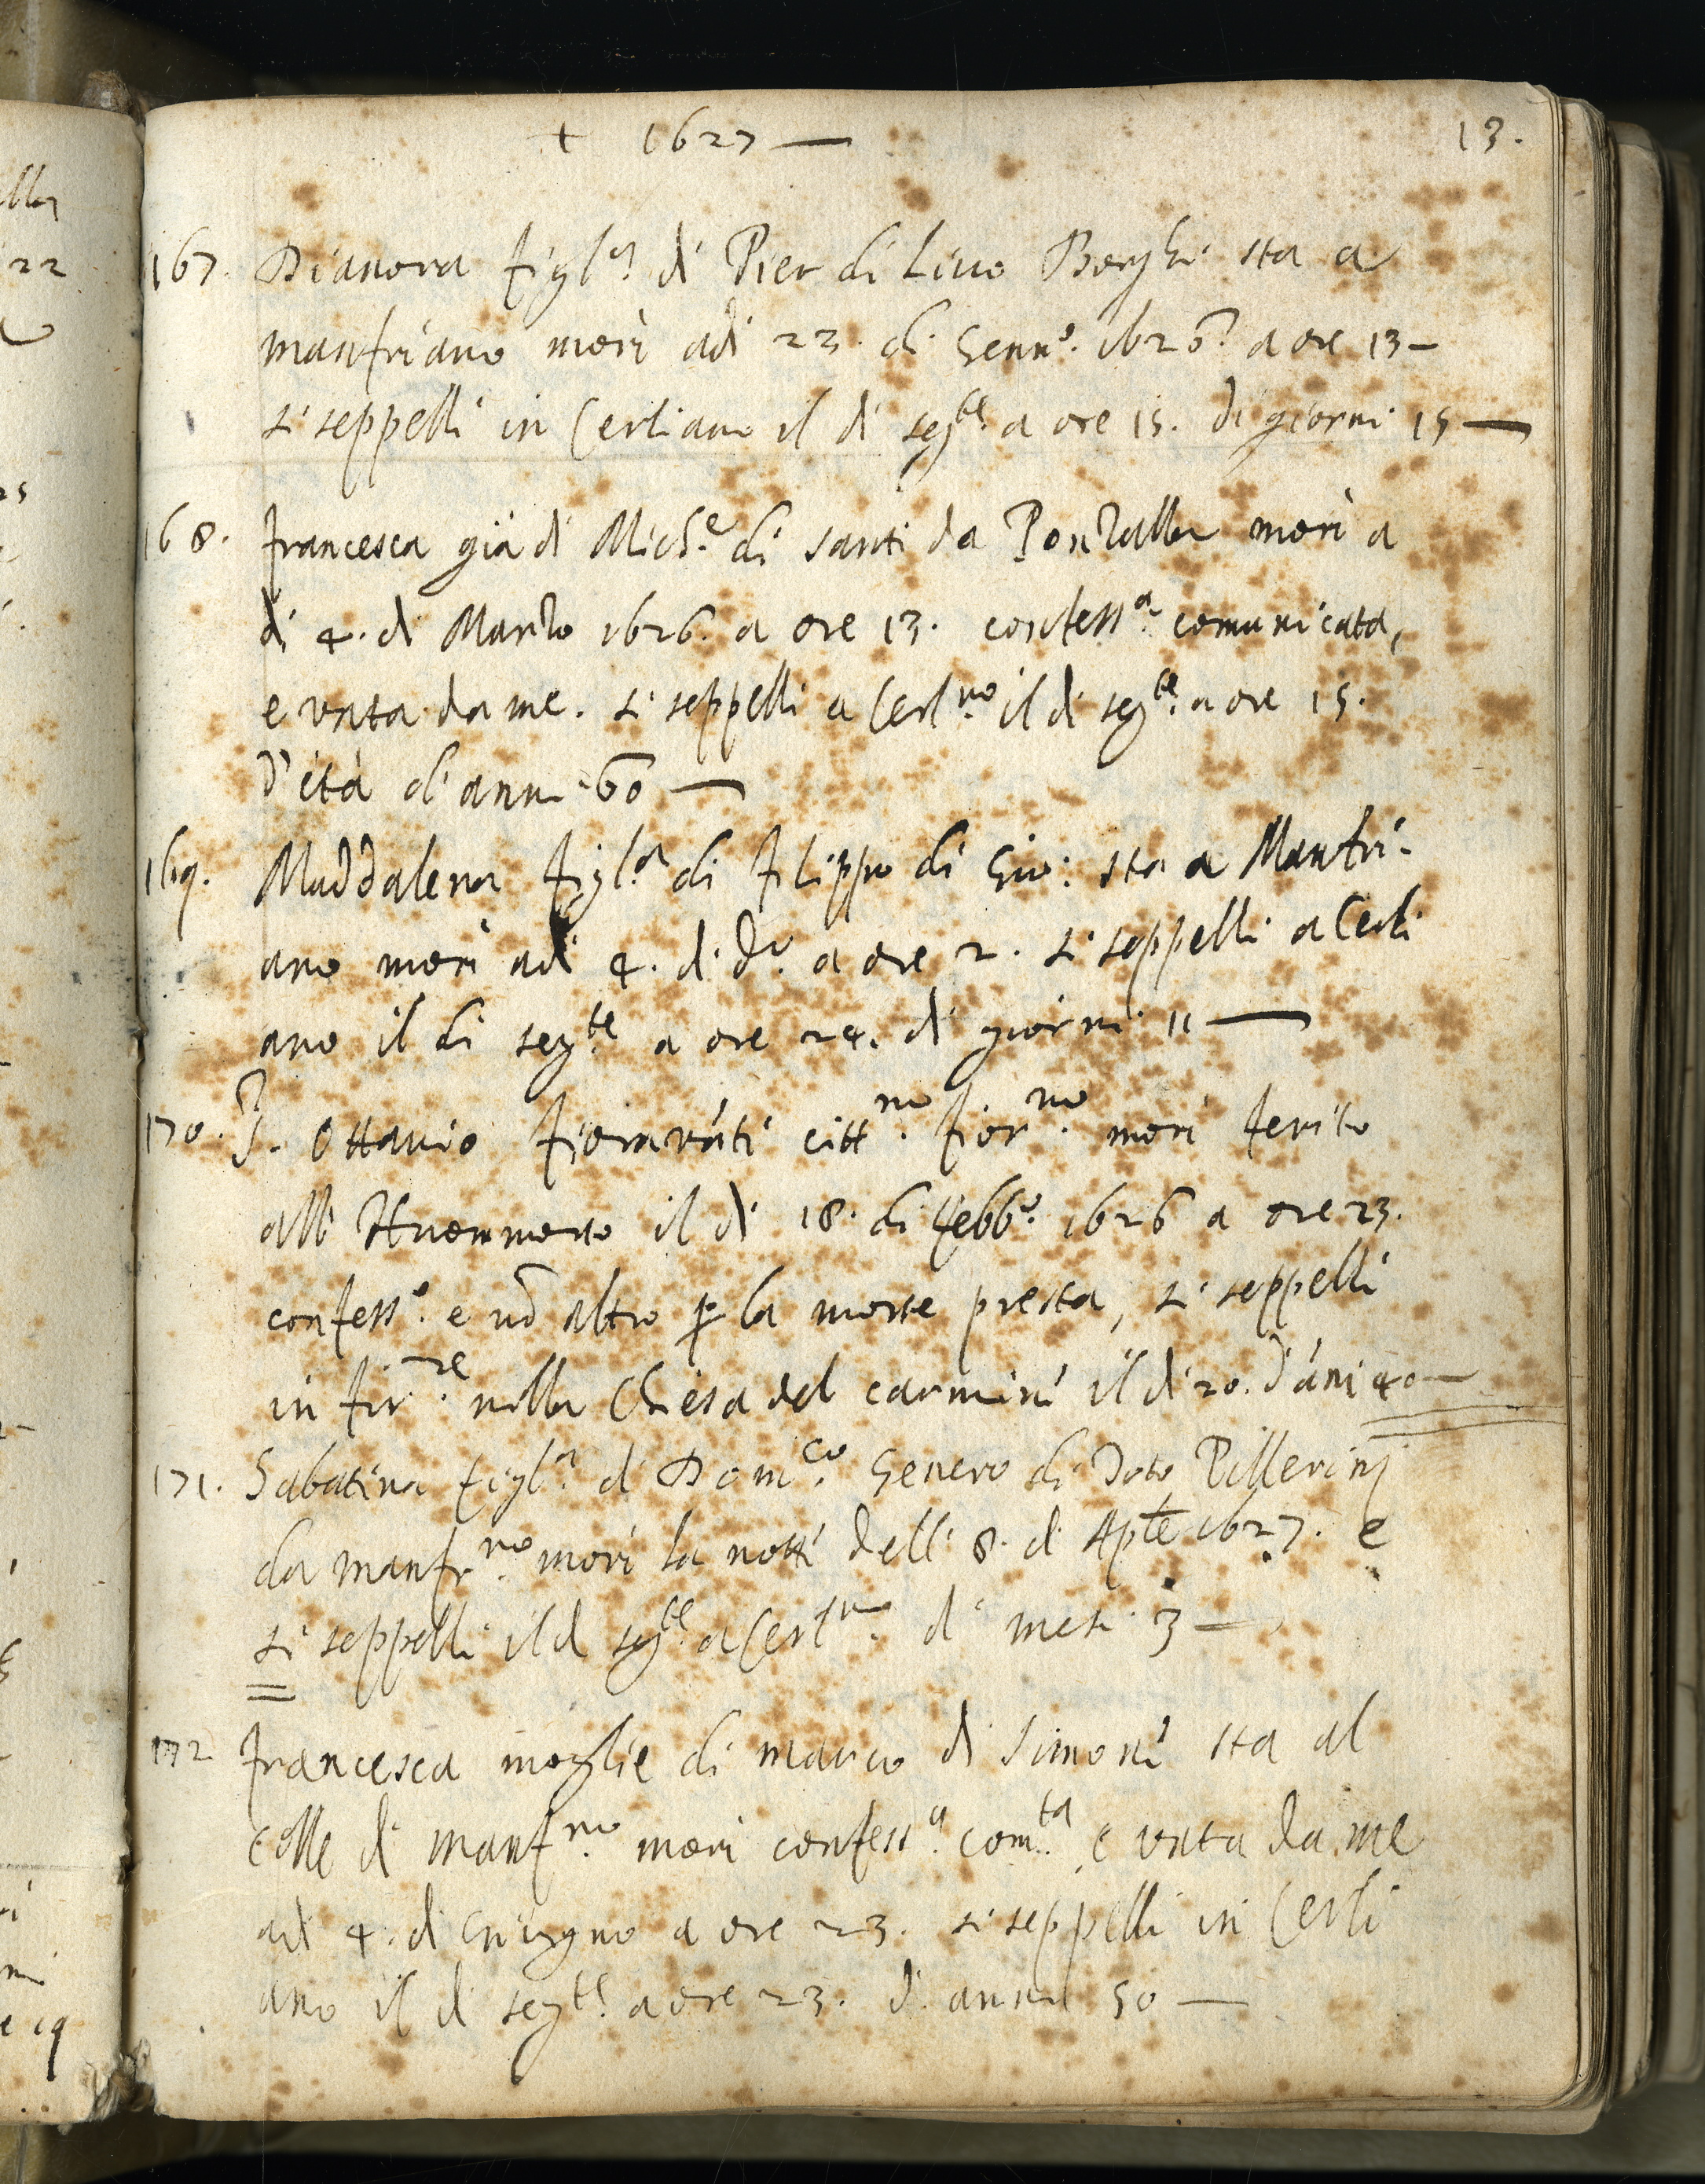 + 1627 —
13.
167. Dianora figl.a di Pier di Livo Borghi sta a
manfriano morì adi 23. di Genn.o 1626. a ore 13 —
si seppellì in Certiano il di seg.te a ore 15. di giorni 15 —
168. francesca già di Mich.e di santi da Ponzalla morì a
di 4. di Marzo 1626. a ore 13. confess.a comunicata,
e unta da me. si seppellì a Cert.no il di seg.te a ore 15.
d'età di anni 60 —
169. Maddalena figl.a di filippo di Gio: sta a Manfri-
ano morì adi 4. di d.o a ore 2. si seppellì a Certi
ano il di seg.te a ore 24. di giorni 11 —
170. S. Ottavio fioravāti citt.no fior.no morì ferito
all' il di 18. di febb.o 1626 a ore 23.
confess.o e nō altro p la morte presta, si seppellì
in fir.re nella Chiesa del carmini il di 20. d'āni 40 —
171. Sabatina figl.a di Dom.co Genero di Doto Pillerini
da manfr.no morì la notti delli 8. di Aple 1627. e
si seppellì il di seg.te a Cert.no di mesi 3 —
172 francesca moglie di marco di Simoni sta al
colle di manf.no morì confess.a com.ta e unta da me
adi 4. di Giugno a ore 23. si seppellì in Certi
ano il di seg.te a ore 23. di anni 50 —